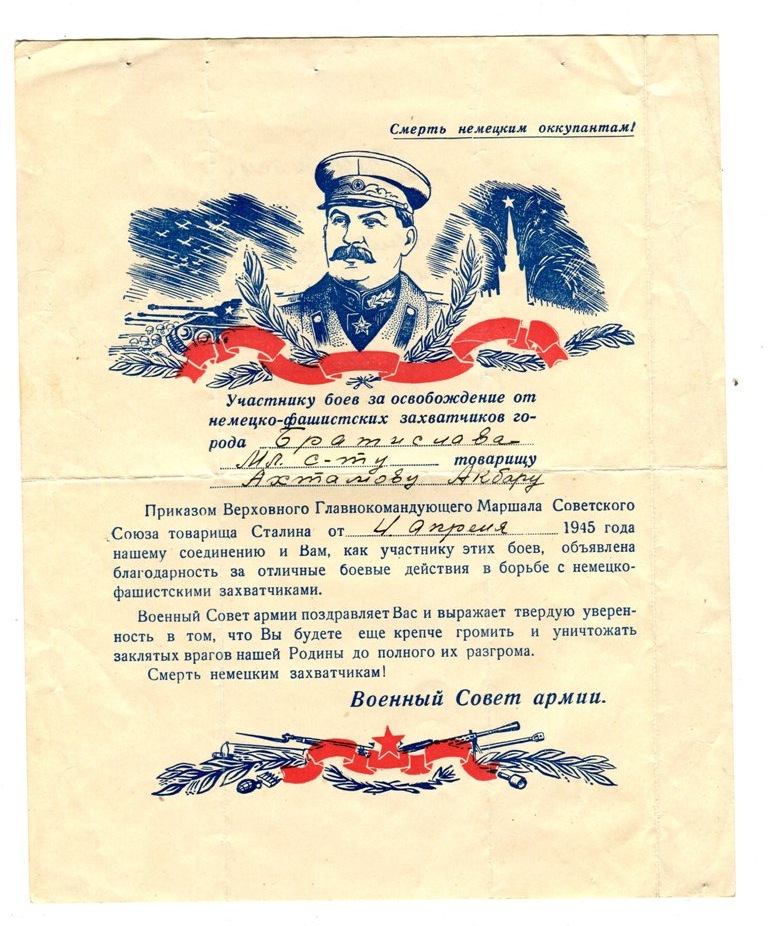 Смерть немецким оккупантам!
Участнику боев за освобождение от
немецко-фашистских захватчиков го-
рода Братислава
Мл. с-ту товарищу
Ахтамову Акбару
Приказом Верховного Главнокомандующего Маршала Советского
Союза товарища Сталина от 4 апреля 1945 года
нашему соединению и Вам, как участнику этих боев, объявлена
благодарность за отличные боевые действия в борьбе с немецко-
фашистскими захватчиками.
Военный Совет армии поздравляет Вас и выражает твердую уверен-
ность в том, что Вы будете еще крепче громить и уничтожать
заклятых врагов нашей Родины до полного их разгрома.
Смерть немецким захватчикам!
Военный Совет армии.